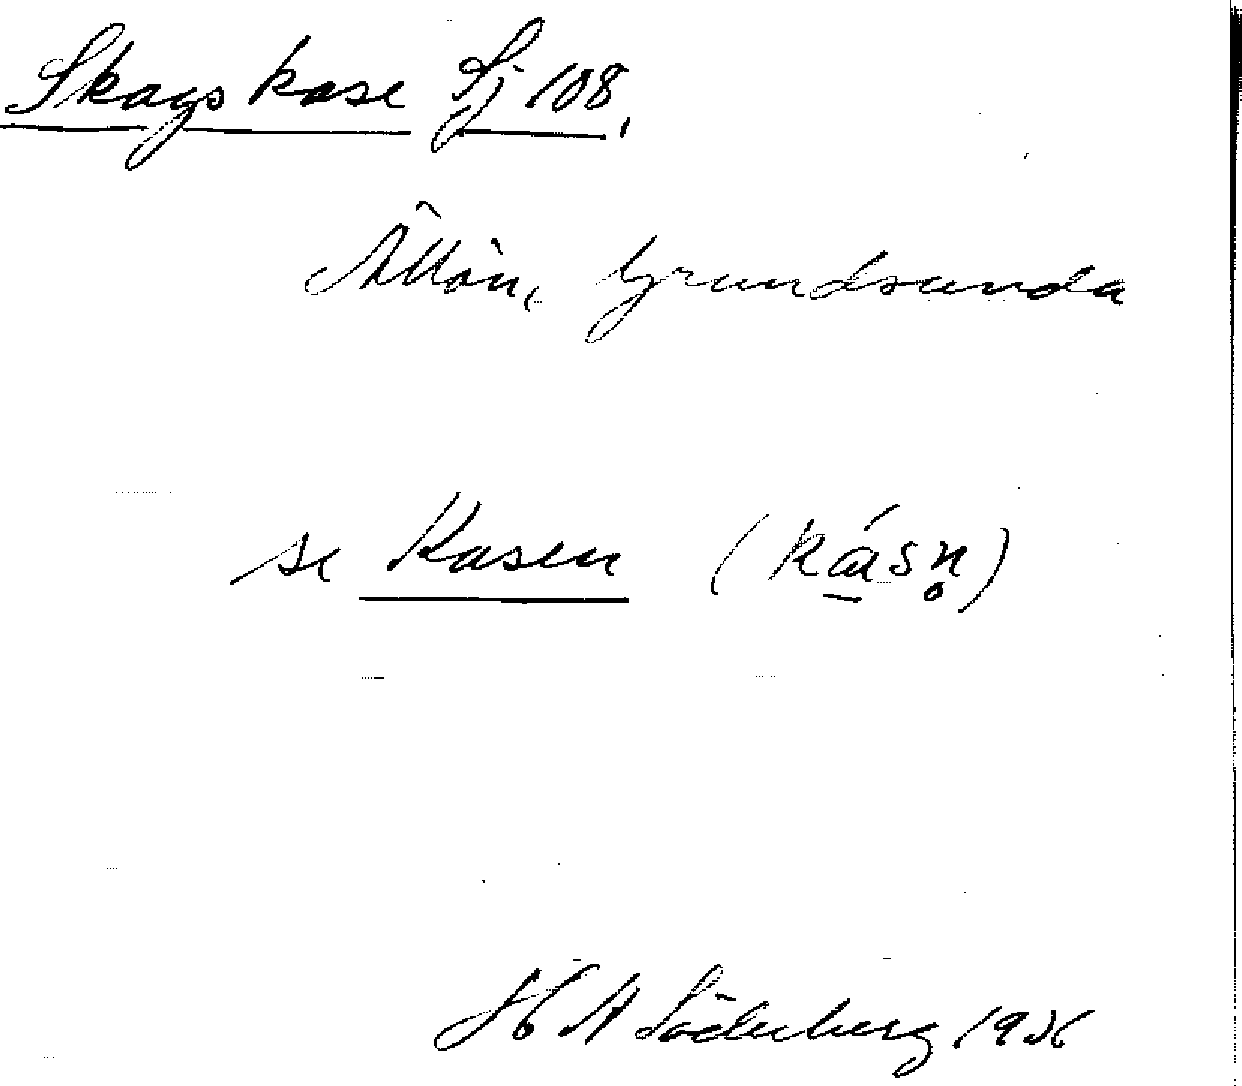 Skags kase Sj 108,
Ällön, Grundsunda
se Kasen (kásn̥)
H A Söderberg 1926